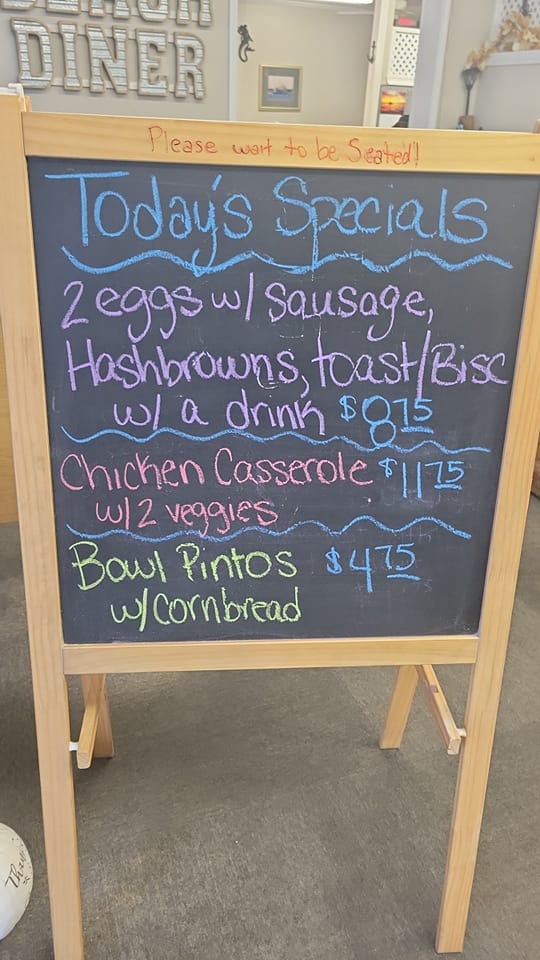 DINER
Please wait to be Seated!
Today's Specials
2 eggs w/ sausage,
Hashbrowns, toast/Bisc
w/ a drink $8.75
Chicken Casserole $11.75
w/2 veggies
Bowl Pintos $4.75
w/Cornbread